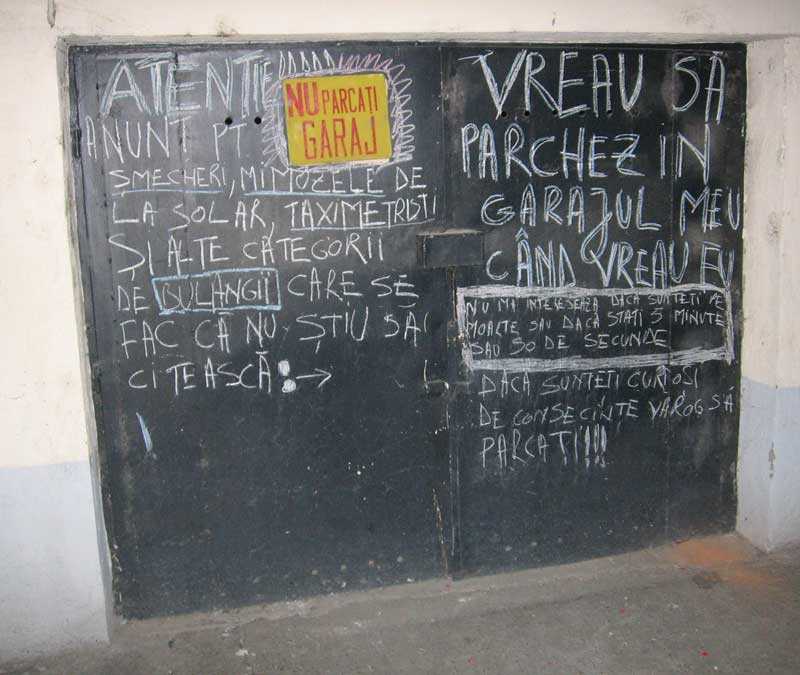 ATENȚIE!!!!!
NU PARCAȚI
GARAJ
ANUNT PT.
ȘMECHERI, MIMOZELE DE
LA SOLAR, TAXIMETRIȘTI
ȘI ALTE CATEGORII
DE BULANGII CARE SE
FAC CĂ NU ȘTIU SĂ
CITEASCĂ: →
VREAU SĂ
PARCHEZ IN
GARAJUL MEU
CÂND VREAU EU
NU MĂ INTERESEAZA DACĂ SUNTEȚI PE
MOARTE SAU DACĂ STATI 5 MINUTE
SAU 30 DE SECUNDE
DACĂ SUNTEȚI CURIOSI
DE CONSECINTE VĂ ROG SĂ
PARCAȚI!!!